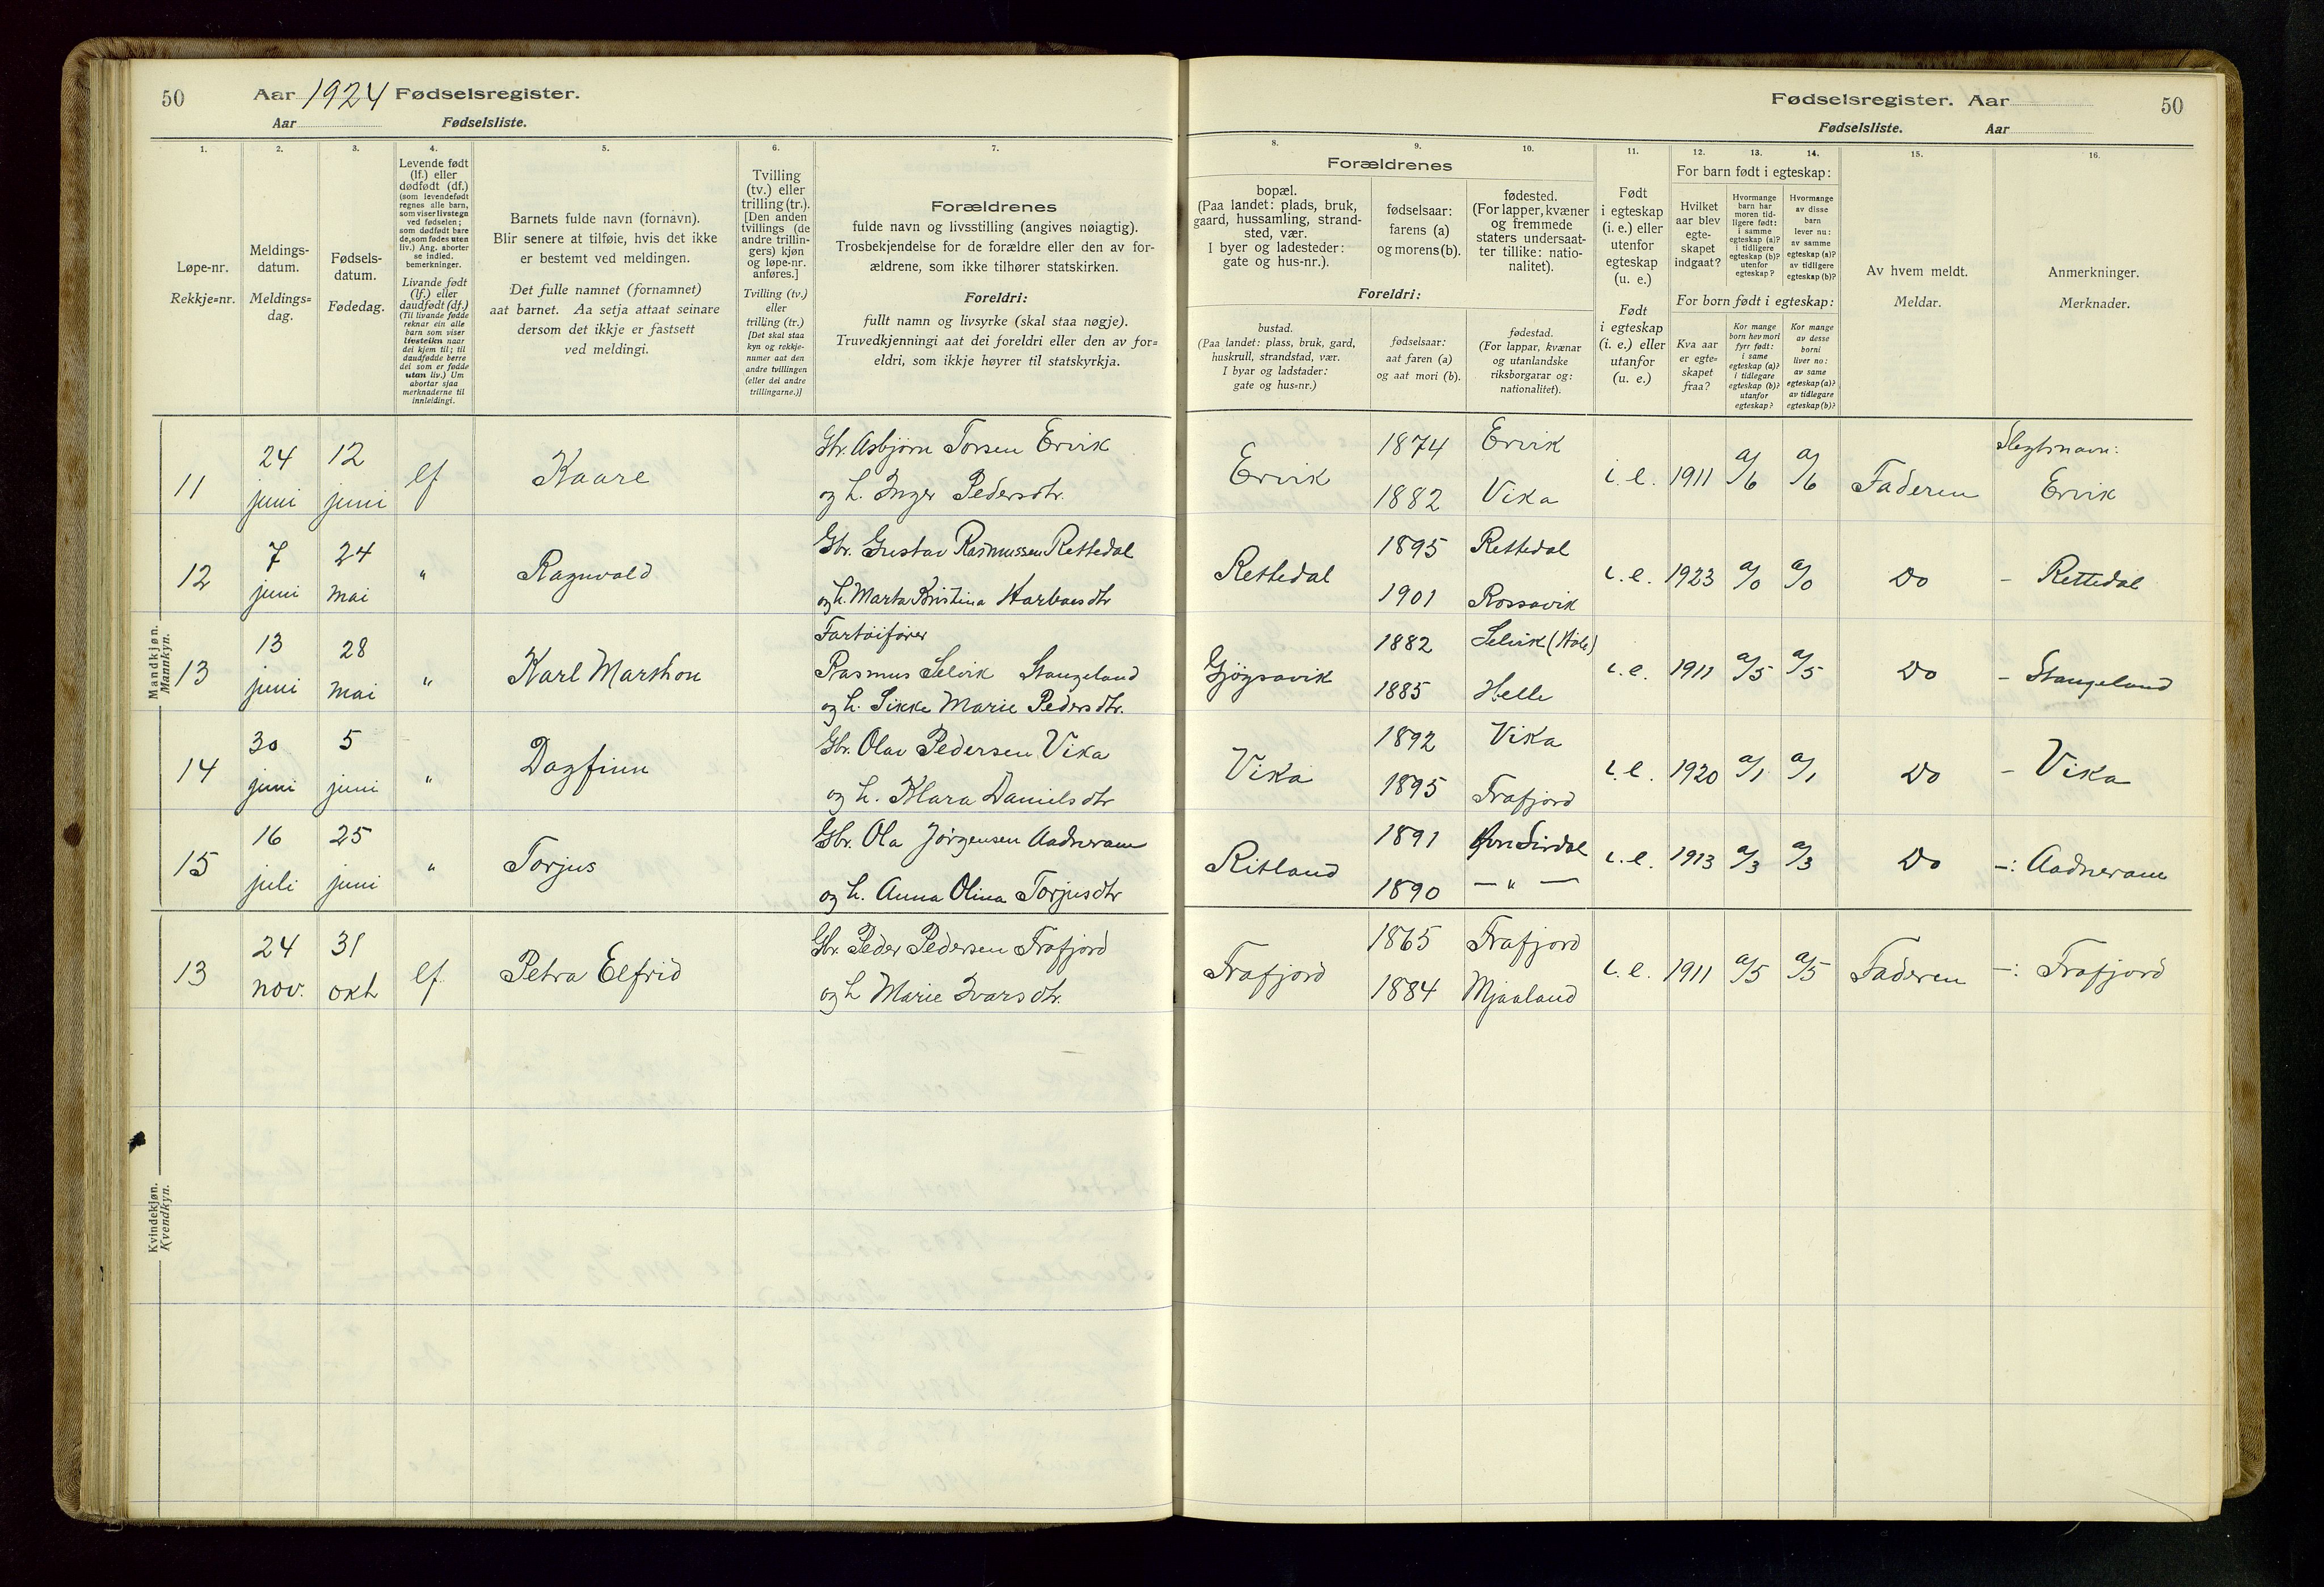 50
Aar 1924 Fødselsregister.
Aar Fødselsliste.
Fødselsregister. Aar
50
Fødselsliste. Aar
1.
Løpe-nr.
Rekkje=nr.
2.
Meldings-
datum.
Meldings=
dag.
3.
Fødsels-
datum.
Fødedag.
4.
Levende født
(lf.) eller
dødfødt (df.)
(som levendefødt
regnes alle barn,
som viser livstegn
ved fødselen;
som dødfødt bare
de, som fødes uten
liv.) Ang. aborter
se indled.
bemerkninger.
Livande født
(lf.) eller
daudfødt (df.)
(Til livande fødde
reknar ein alle
barn som viser
livsteikn naar
dei kjem til; til
daudfødde berre
dei som er fødde
utan liv.) Um
abortar sjaa
merknaderne til
innleidingi.
5.
Barnets fulde navn (fornavn).
Blir senere at tilføie, hvis det ikke
er bestemt ved meldingen.
Det fulle namnet (fornamnet)
aat barnet. Aa setja attaat seinare
dersom det ikkje er fastsett
ved meldingi.
6.
Tvilling
(tv.) eller
trilling (tr.).
[Den anden
tvillings (de
andre trillin-
gers) kjøn
og løpe-nr.
anføres.]
Tvilling (tv.)
eller
trilling (tr.)
[Det skal staa
kyn og rekkje-
numer aat den
andre tvillingen
(eller dei andre
trillingarne.)]
7.
Forældrenes
fulde navn og livsstilling (angives nøiagtig).
Trosbekjendelse for de forældre eller den av for-
ældrene, som ikke tilhører statskirken.
Foreldri:
fullt namn og livsyrke (skal staa nøgje).
Truvedkjenningi aat dei foreldri eller den av for=
eldri, som ikkje høyrer til statskyrkja.
Forældrenes
8.
bopæl.
(Paa landet: plads, bruk,
gaard, hussamling, strand-
sted, vær.
I byer og ladesteder:
gate og hus-nr.).
9.
fødselsaar:
farens (a)
og morens (b).
10.
fødested.
(For lapper, kvæner
og fremmede
staters undersaat-
ter tillike: natio-
nalitet).
Foreldri:
bustad.
(Paa landet: plass, bruk, gard,
huskrull, strandstad, vær.
I byar og ladstader:
gate og hus=nr.)
fødselsaar:
aat faren (a)
og aat mori (b).
fødestad.
(For lappar, kvænar
og utanlandske
riksborgarar og:
nationalitet).
11.
Født
i egteskap
(i. e.) eller
utenfor
egteskap
(u. e.)
Født
i egteskap
(i. e.) eller
utanfor
(u. e.)
12. 13. 14.
For barn født i egteskap:
Hvilket
aar blev
egte-
skapet
indgaat?
Hvormange
barn har
moren tid-
ligere født:
i samme
egteskap (a)?
i tidligere
egteskap (b)?
utenfor
egteskap?
Hvormange
av disse
barn
lever nu:
av samme
egteskap (a)?
av tidligere
egteskap (b)?
For born født i egteskap:
Kva aar
er egte-
skapet
fraa?
Kor mange
born hev mori
fyrr født:
i same
egteskap (a)?
i tidlegare
egteskap (b)?
utanfor
egteskap?
Kor mange
av desse
borni
liver no:
av same
egteskap (a)?
av tidlegare
egteskap (b)?
15.
Av hvem meldt.
Meldar.
16.
Anmerkninger.
Merknader.
Mandkjøn.
Mannkyn.
11 24 juni 12 juni lf Kaare
Gbr. Asbjørn Torsen Ervik
og h. Inger Pedersdtr.
Ervik 1874 Ervik
1882 Vika
i. e. 1911 a/6 a/6 Faderen Slegtsnavn: Ervik
12 7 juni 24 mai " Ragnvald
Gbr. Gustav Rasmussen Rettedal
og h. Marta Kristina Karbaesdtr
Rettedal 1895 Rettedal
1901 Rossavik
i. e. 1923 a/0 a/0 Do – Rettedal
13 13 juni 28 mai " Karl Marthon
Fartøifører
Rasmus Selvik Stangeland
og h. Sikke Marie Pedersdtr.
Gjøgsavik 1882 Selvik (Høle)
1885 Helle
i. e. 1911 a/5 a/5 Do – Stangeland
14 30 juni 5 juni " Dagfinn
Gbr. Olav Pedersen Vika
og h. Klara Danielsdtr
Vika 1892 Vika
1895 Frafjord
i. e. 1920 a/1 a/1 Do – Vika
15 16 juli 25 juni " Torjus
Gbr. Ola Jørgensen Aadneram
og h. Anna Olina Torjusdtr
Ritland 1891 Øvre Sirdal
1890 – " –
i. e. 1913 a/3 a/3 Do –: Aadneram
Kvindekjøn.
Kvendkyn.
13 24 nov. 31 okt lf Petra Elfrid
Gbr. Peder Pedersen Frafjord
og h Marie Ivarsdtr.
Frafjord 1865 Frafjord
1884 Mjaaland
i. e. 1911 a/5 a/5 Faderen –: Frafjord